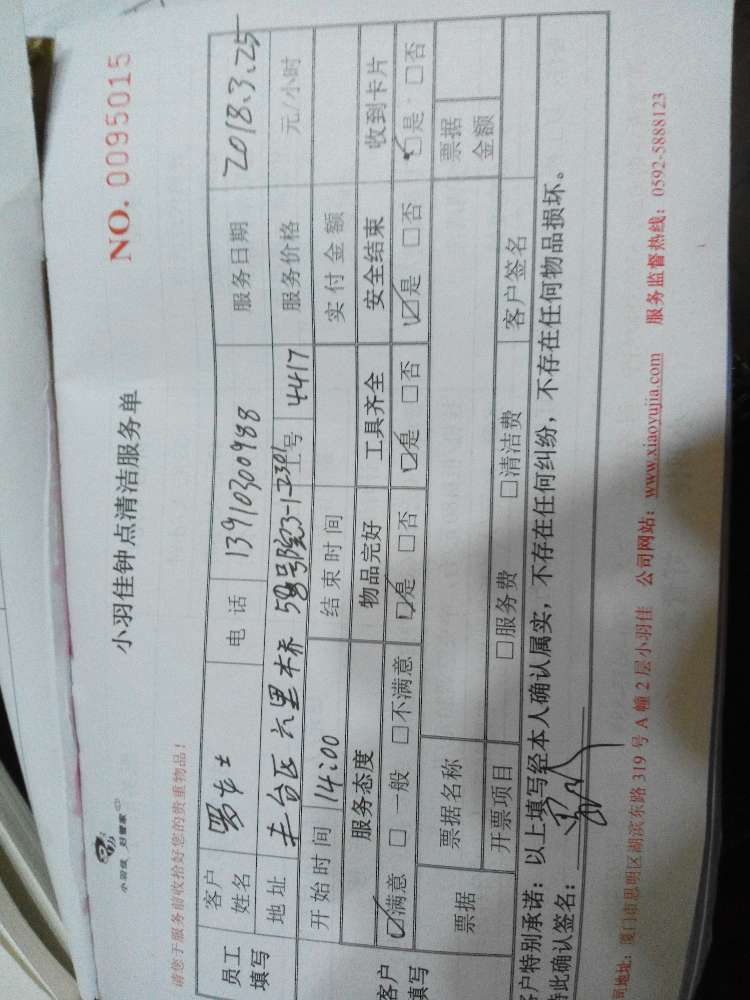 小羽佳 好管家
小羽佳钟点清洁服务单
NO. 0095015
请您于服务前收拾好您的贵重物品！
员工填写 客户姓名 罗女士 电 话 13910300988 服务日期 2018.3.25
地址 丰台区六里桥 58号院3-1-2301 工号 4417 服务价格 元/小时
开始时间 14:00 结束时间 实付金额
客户填写 服务态度 物品完好 工具齐全 安全结束 收到卡片
☑满意 □一般 □不满意 ☑是 □否 ☑是 □否 ☑是 □否 ☑是 □否
票据 票据名称 票据金额
开票项目 □服务费 □清洁费 客户签名
客户特别承诺：以上填写经本人确认属实，不存在任何纠纷，不存在任何物品损坏。
特此确认签名：
司地址：厦门市思明区湖滨东路 319 号 A 幢 2 层小羽佳 公司网站：www.xiaoyujia.com 服务监督热线：0592-5888123